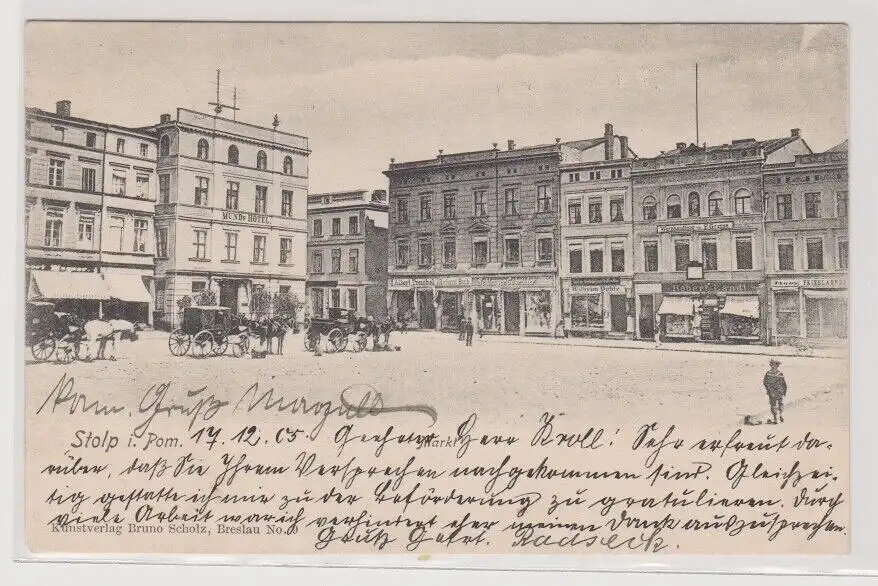 MUNDs HOTEL
Kam. Gruß
Stolp i. Pom. 17.12.05. Geehrter Herr Kroll! Sehr erfreut da-
Markt
rüber, daß Sie Ihrem Versprechen nachgekommen sind. Gleichzei-
tig gestatte ich mir zu der Beförderung zu gratulieren. Durch
viele Arbeit war ich verhindert eher meinen Dank auszusprechen.
Kunstverlag Bruno Scholz, Breslau No.
Gruß Gefr. Radseck.